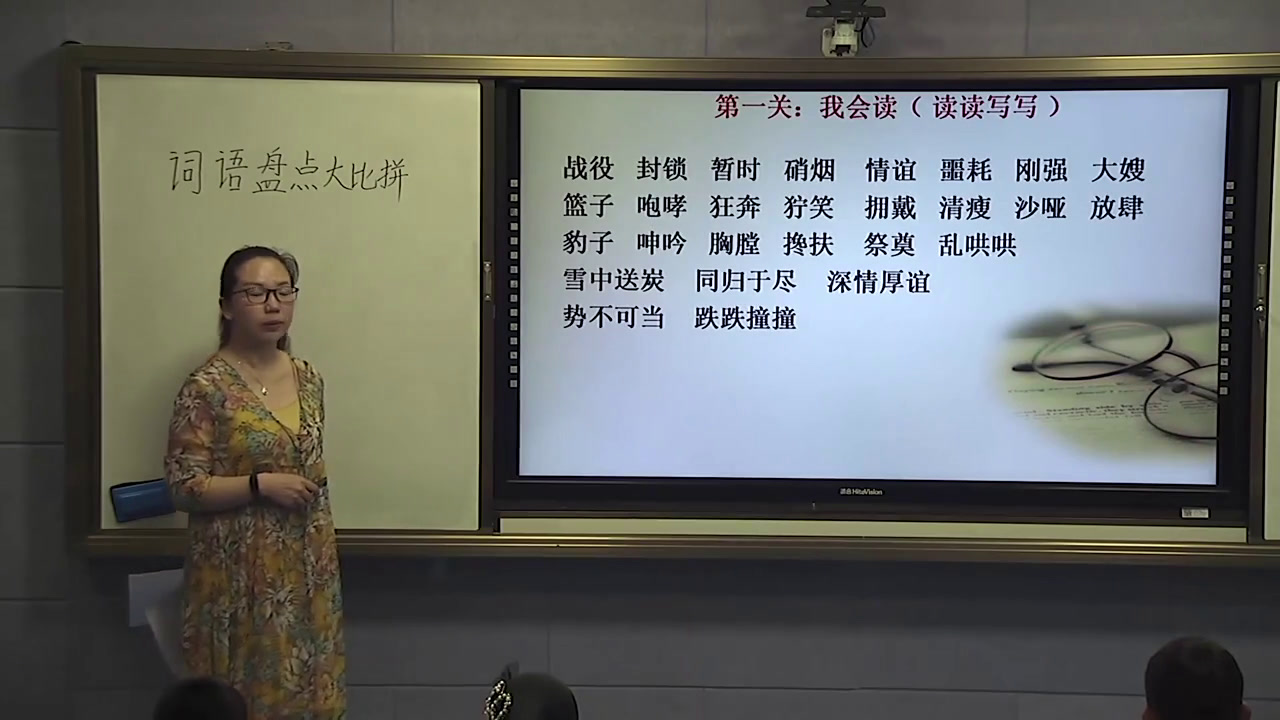 词语盘点大比拼
第一关：我会读（读读写写）
战役 封锁 暂时 硝烟 情谊 噩耗 刚强 大嫂
篮子 咆哮 狂奔 狞笑 拥戴 清瘦 沙哑 放肆
豹子 呻吟 胸膛 搀扶 祭奠 乱哄哄
雪中送炭 同归于尽 深情厚谊
势不可当 跌跌撞撞
HiteVision